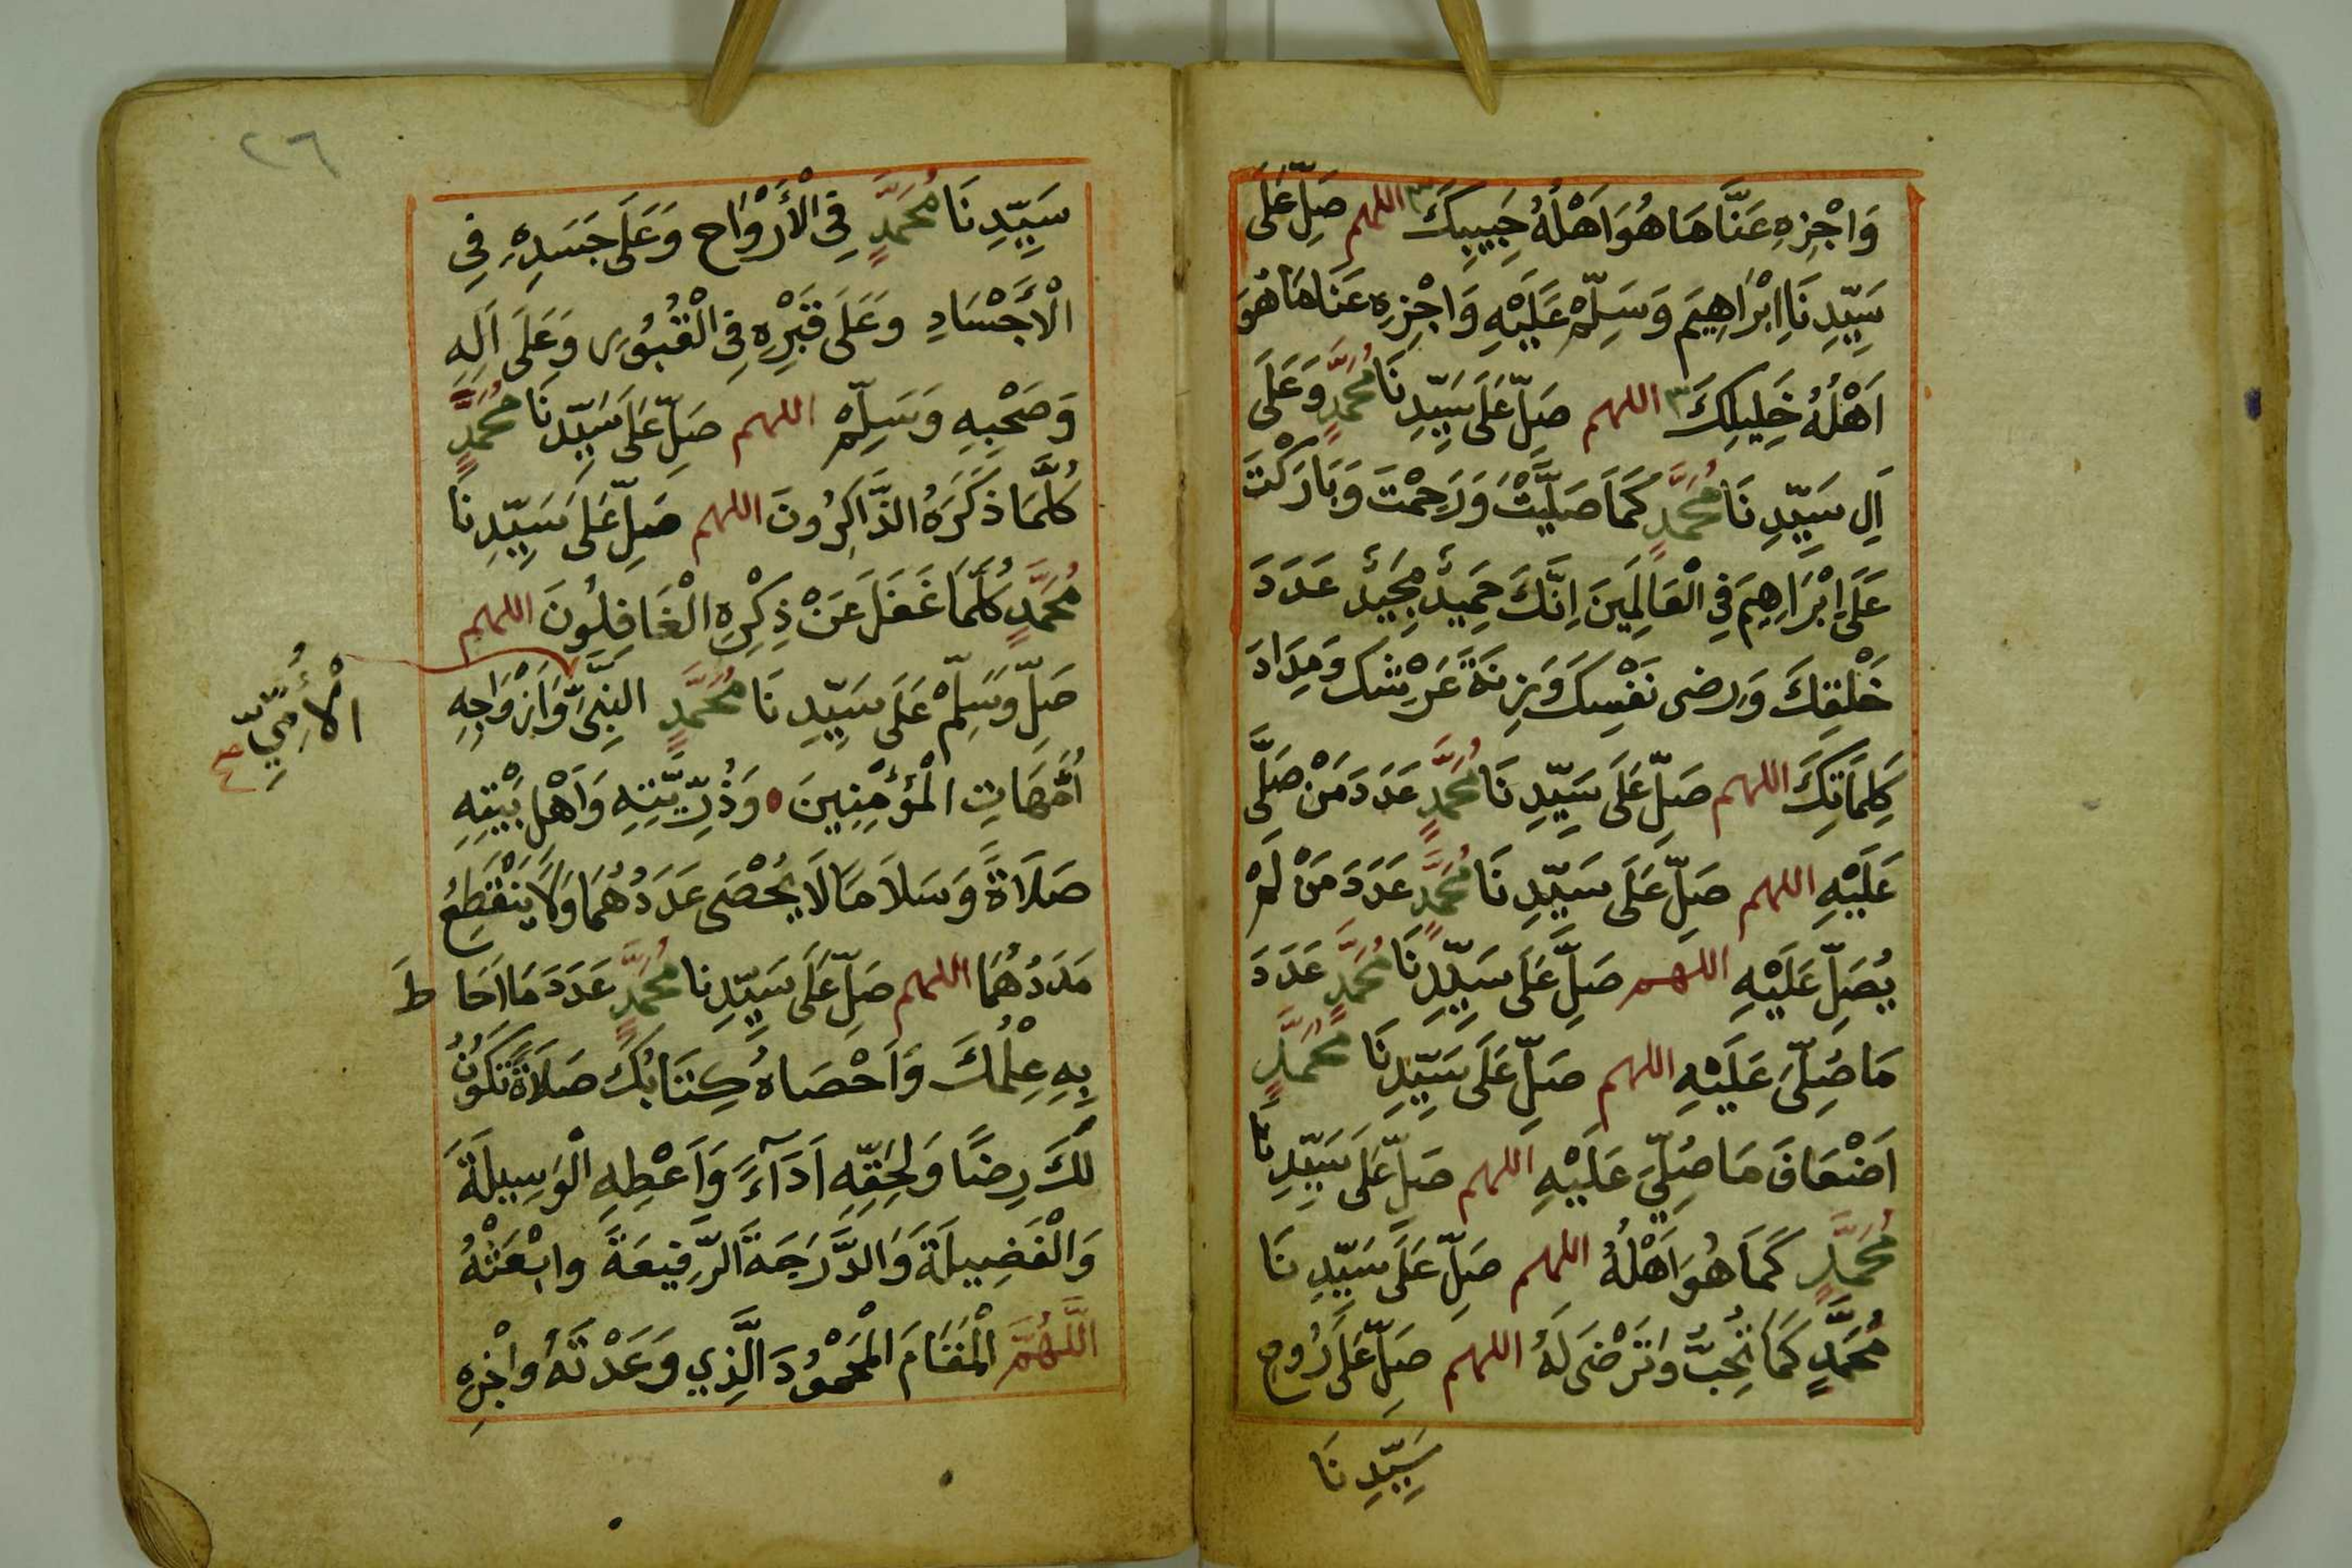 وَاجْزِهِ عَنَّا مَا هُوَ اَهْلُهُ حَبِيبِكَ ٣ اللهم صَلِّ عَلَى
سَيِّدِنَا اِبْرَاهِيمَ وَسَلِّمْ عَلَيْهِ وَاجْزِهِ عَنَا مَا هُوَ
اَهْلُهُ خَلِيلِكَ ٣ اللهم صَلِّ عَلَى سَيِّدِنَا مُحَمَّدٍ وَعَلَى
اَلِ سَيِّدِنَا مُحَمَّدٍ كَمَا صَلَيَّتْ وَرَحِمْتَ وَبَارَكْتَ
عَلَى اِبْرَاهِيمَ فِي الْعَالَمِينَ اِنَّكَ حَمِيدٌ مَجِيدٌ عَدَدَ
خَلْقِكَ وَرِضى نَفْسِكَ وَزِنَةَ عَرْشِكَ وَمِدَادَ
كَلِمَاتِكَ اللهم صَلِّ عَلَى سَيِّدِنَا مُحَمَّدٍ عَدَدَ مَنْ صَلَّى
عَلَيْهِ اللهم صَلِّ عَلَى سَيِّدِنَا مُحَمَّدٍ عَدَدَ مَنْ لَمْ
يُصَلِّ عَلَيْهِ اللهم صَلِّ عَلَى سَيِّدِنَا مُحَمَّدٍ عَدَدَ
مَا صُلِّىَ عَلَيْهِ اللهم صَلِّ عَلَى سَيِّدِنَا مُحَمَّدٍ
اَضْعَافَ مَا صُلِّيَ عَلَيْهِ اللهم صَلِّ عَلَى سَيِّدِنَا
مُحَمَّدٍ كَمَا هُوَ اَهْلُهُ اللهم صَلِّ عَلَى سَيِّدِنَا
مُحَمَّدٍ كَمَا تُحِبُّ وَتَرْضَى لَهُ اللهم صَلِّ عَلَى رُوحِ
سَيِّدِنَا
٢٦
سَيِّدِنَا مُحَمَّدٍ فِي الْأَرْوَاحِ وَعَلَى جَسَدِهِ فِي
الْأَجْسَادِ وَعَلَى قَبْرِهِ فِي الْقُبُورِ وَعَلَى اَلِهِ
وَصَحْبِهِ وَسَلِّمْ اللهم صَلِّ عَلَى سَيِّدِنَا مُحَمَّدٍ
كُلَّمَا ذَكَرَهُ الذَّاكِرُونَ اللهم صَلِّ عَلَى سَيِّدِنَا
مُحَمَّدٍ كُلَّمَا غَفَلَ عَنْ ذِكْرِهِ الْغَافِلُونَ اللهم
صَلِّ وَسَلِّمْ عَلَى سَيِّدِنَا مُحَمَّدٍ النَّبِيِّ وَاَزْوَاجِهِ
الْأُمِّيِّ
اُمَّهَاتِ الْمُؤْمِنِينَ وَذُرِّيَّتِهِ وَاَهْلِ بَيْتِهِ
صَلَاةً وَسَلَامًا لَا يُحْصَى عَدَدُهُمَا وَلَا يَنْقَطِعُ
مَدَدُهُمَا اللهم صَلِّ عَلَى سَيِّدِنَا مُحَمَّدٍ عَدَدَ مَا اَحَاطَ
بِهِ عِلْمُكَ وَاَحْصَاهُ كِتَابُكَ صَلَاةً تَكُونُ
لَكَ رِضًا وَلِحَقِّهِ اَدَآءً وَاَعْطِهِ الْوَسِيلَةَ
وَالْفَضِيلَةَ وَالدَّرَجَةَ الرَّفِيعَةَ وابْعَثْهُ
اللَّهُمَّ الْمَقَامَ الْمَحْمُودَ الَّذِي وَعَدْتَهُ وَاجْزِهِ